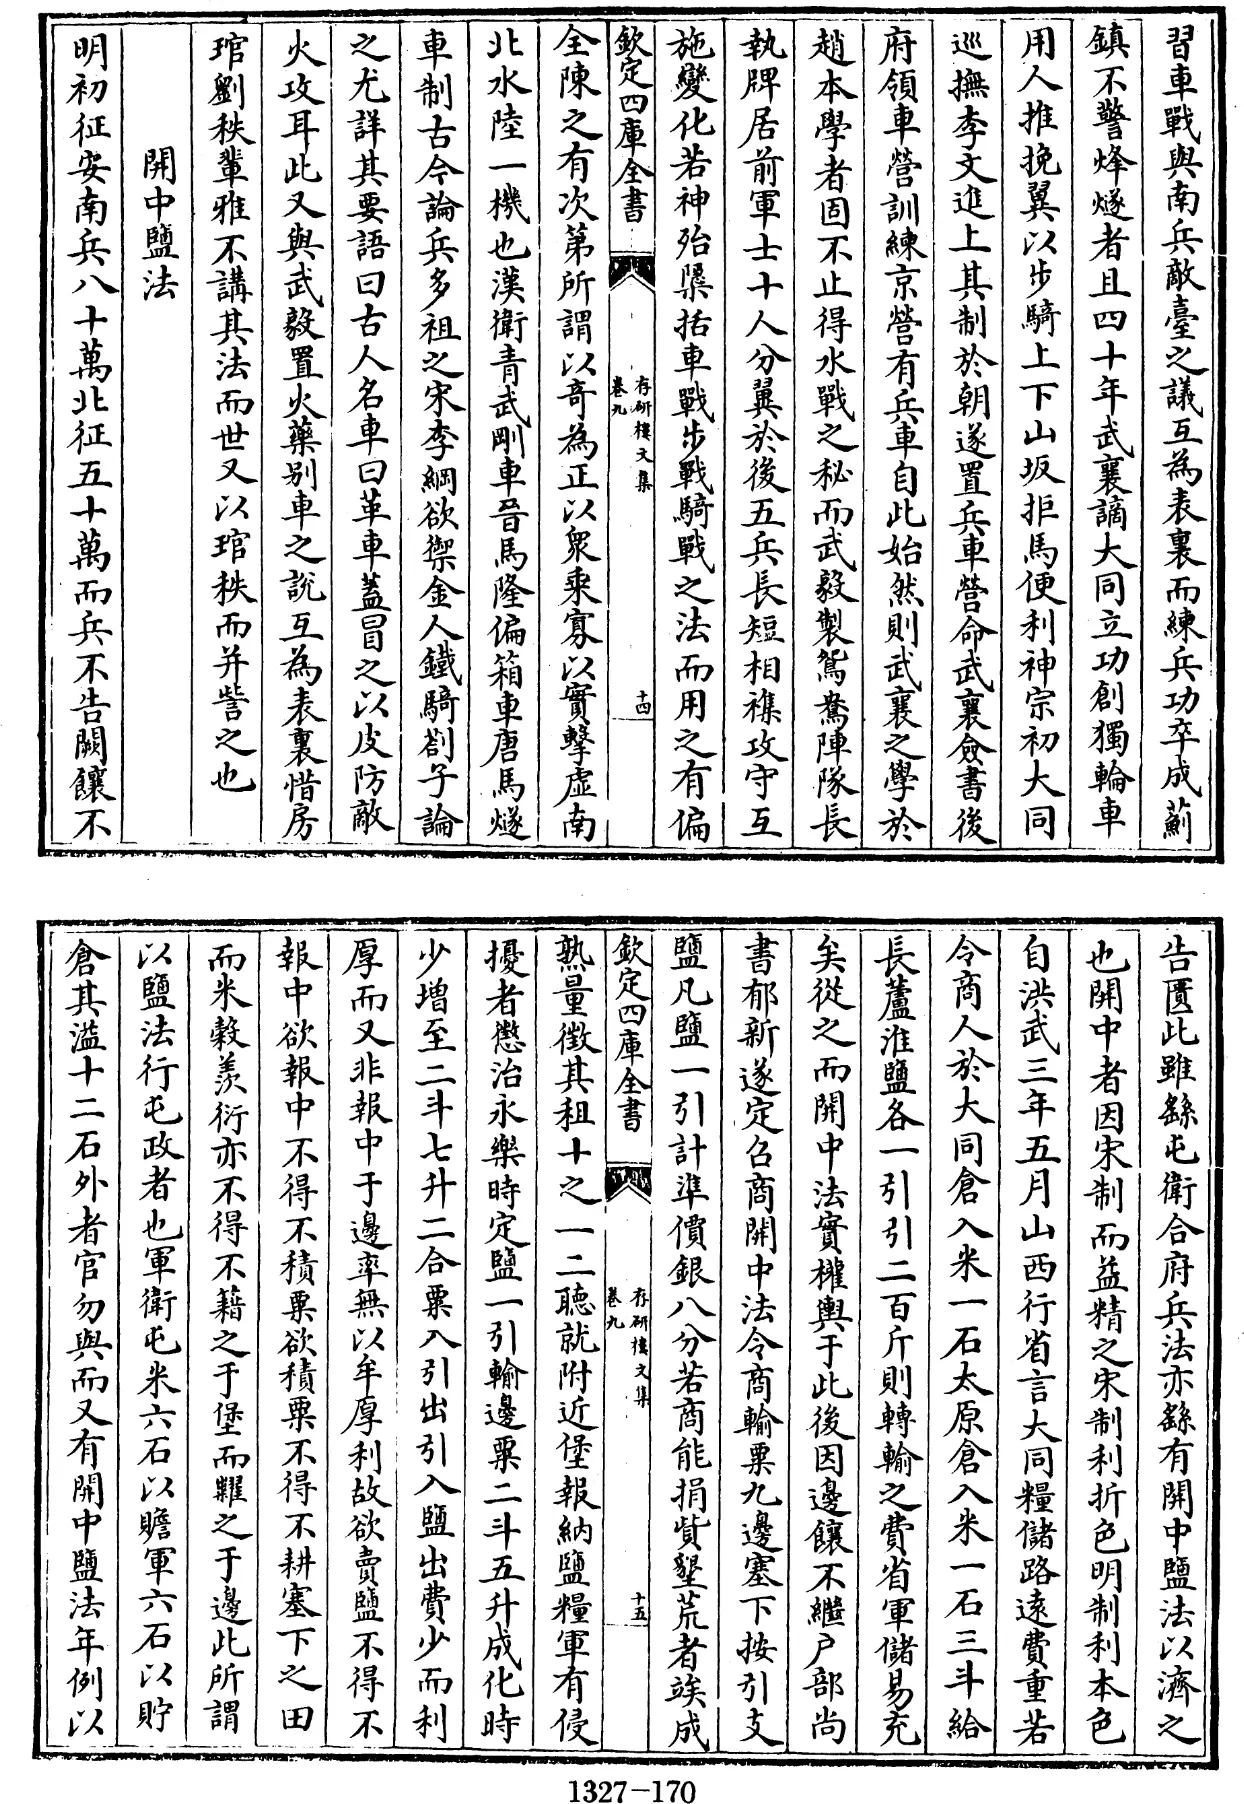 習車戰與南兵敵臺之議互為表裏而練兵功卒成薊
鎮不警烽燧者且四十年武襄謫大同立功創獨輪車
用人推挽翼以步騎上下山坂拒馬便利神宗初大同
巡撫李文進上其制於朝遂置兵車營命武襄僉書後
府領車營訓練京營有兵車自此始然則武襄之學於
趙本學者固不止得水戰之秘而武毅製鴛鴦陣隊長
執牌居前軍士十人分翼於後五兵長短相襍攻守互
施變化若神殆櫽括車戰步戰騎戰之法而用之有偏
欽定四庫全書
存研樓文集
卷九
十四
全陳之有次第所謂以竒為正以衆乘寡以實擊虛南
北水陸一機也漢衛青武剛車晉馬隆偏箱車唐馬燧
車制古今論兵多祖之宋李綱欲禦金人鐵騎劄子論
之尤詳其要語曰古人名車曰革車蓋冒之以皮防敵
火攻耳此又與武毅置火藥别車之說互為表裏惜房
琯劉秩輩雅不講其法而世又以琯秩而并訾之也
開中鹽法
明初征安南兵八十萬北征五十萬而兵不告闕饟不
告匱此雖繇屯衛合府兵法亦繇有開中鹽法以濟之
也開中者因宋制而益精之宋制利折色明制利本色
自洪武三年五月山西行省言大同糧儲路遠費重若
令商人於大同倉入米一石太原倉入米一石三斗給
長蘆淮鹽各一引引二百斤則轉輸之費省軍儲易充
矣從之而開中法實權輿于此後因邊饟不繼户部尚
書郁新遂定召商開中法令商輸粟九邊塞下按引支
鹽凡鹽一引計準價銀八分若商能捐貲墾荒者竢成
欽定四庫全書
存研樓文集
卷九
十五
熟量徵其租十之一二聽就附近堡報納鹽糧軍有侵
擾者懲治永樂時定鹽一引輸邊粟二斗五升成化時
少增至二斗七升二合粟入引出引入鹽出費少而利
厚而又非報中于邊率無以牟厚利故欲賣鹽不得不
報中欲報中不得不積粟欲積粟不得不耕塞下之田
而米榖羨衍亦不得不籍之于堡而糶之于邊此所謂
以鹽法行屯政者也軍衛屯米六石以贍軍六石以貯
倉其溢十二石外者官勿與而又有開中鹽法年例以
1327-170